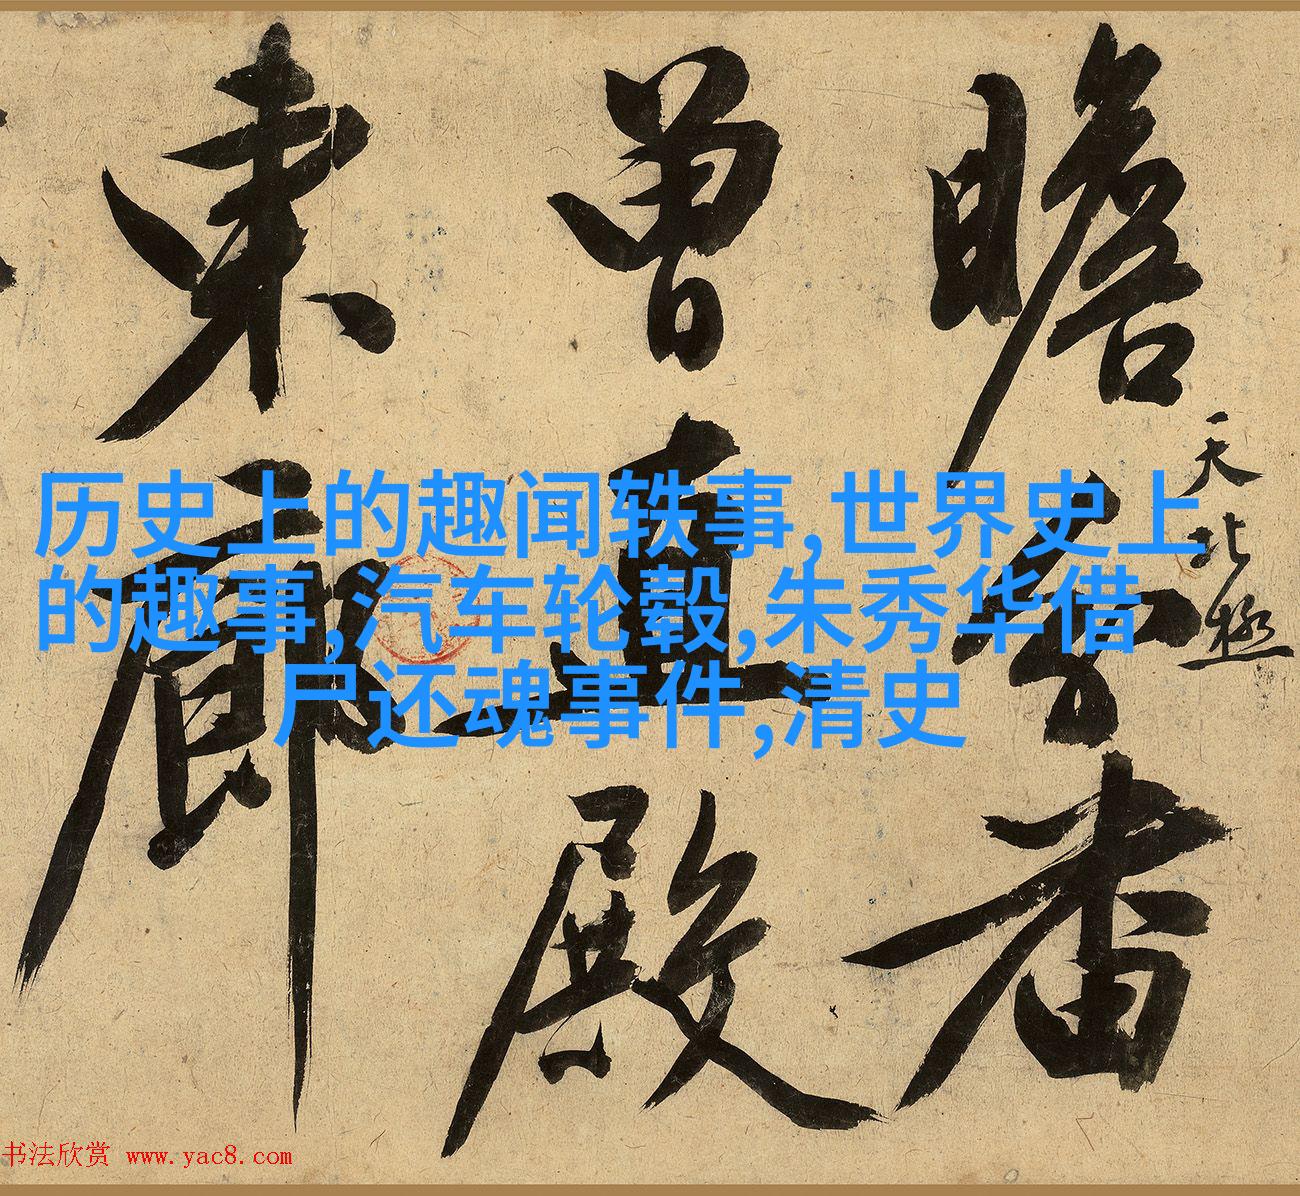 瞻
曾直殿
東廊
天北極
历史上的趣闻轶事,世界史上
的趣事,汽车轮毂,朱秀华借
尸还魂事件,清史
书法欣赏 www.yac8.com